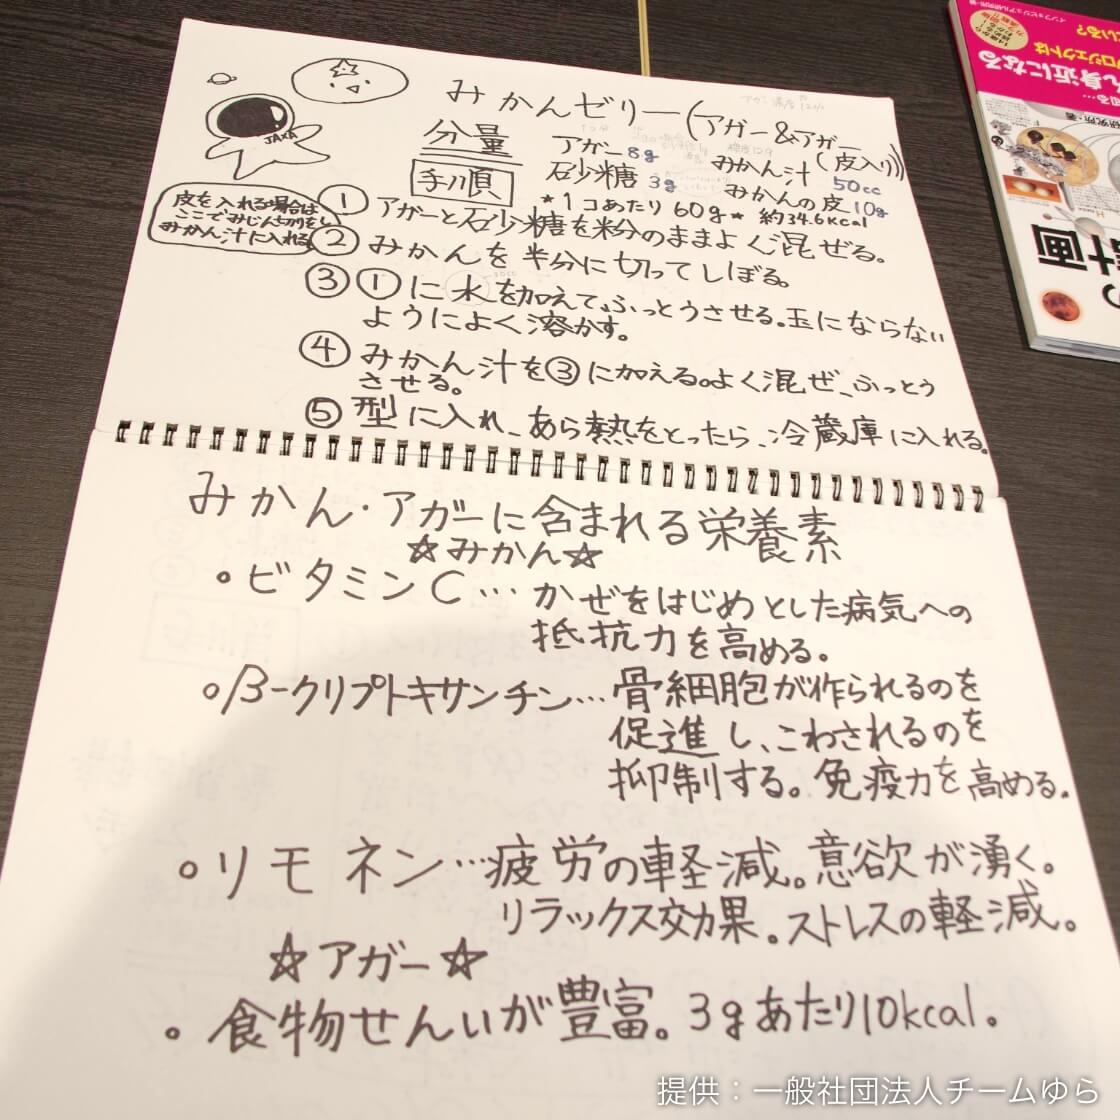 みかんゼリー(アガー&アガー(皮入り))
分量
アガー 8g
みかん汁 50cc
砂糖 3g
みかんの皮 10g
*1コあたり60g* 約34.6Kcal
JAXA
手順
皮を入れる場合は
ここでみじん切りをし
みかん汁に入れる。
①アガーと砂糖を粉のままよく混ぜる。
②みかんを半分に切ってしぼる。
③①に水を加えてふっとうさせる。玉にならない
ようによく溶かす。
④みかん汁を③に加える。よく混ぜ、ふっとう
させる。
⑤型に入れ、あら熱をとったら、冷蔵庫に入れる。
みかん・アガーに含まれる栄養素
☆みかん☆
。ビタミンC…かぜをはじめとした病気への
抵抗力を高める。
。β-クリプトキサンチン…骨細胞が作られるのを
促進し、こわされるのを
抑制する。免疫力を高める。
。リモネン…疲労の軽減。意欲が湧く。
リラックス効果。ストレスの軽減。
☆アガー☆
。食物せんいが豊富。3gあたり10kcal。
ん身近になる
計画
提供:一般社団法人チームゆら